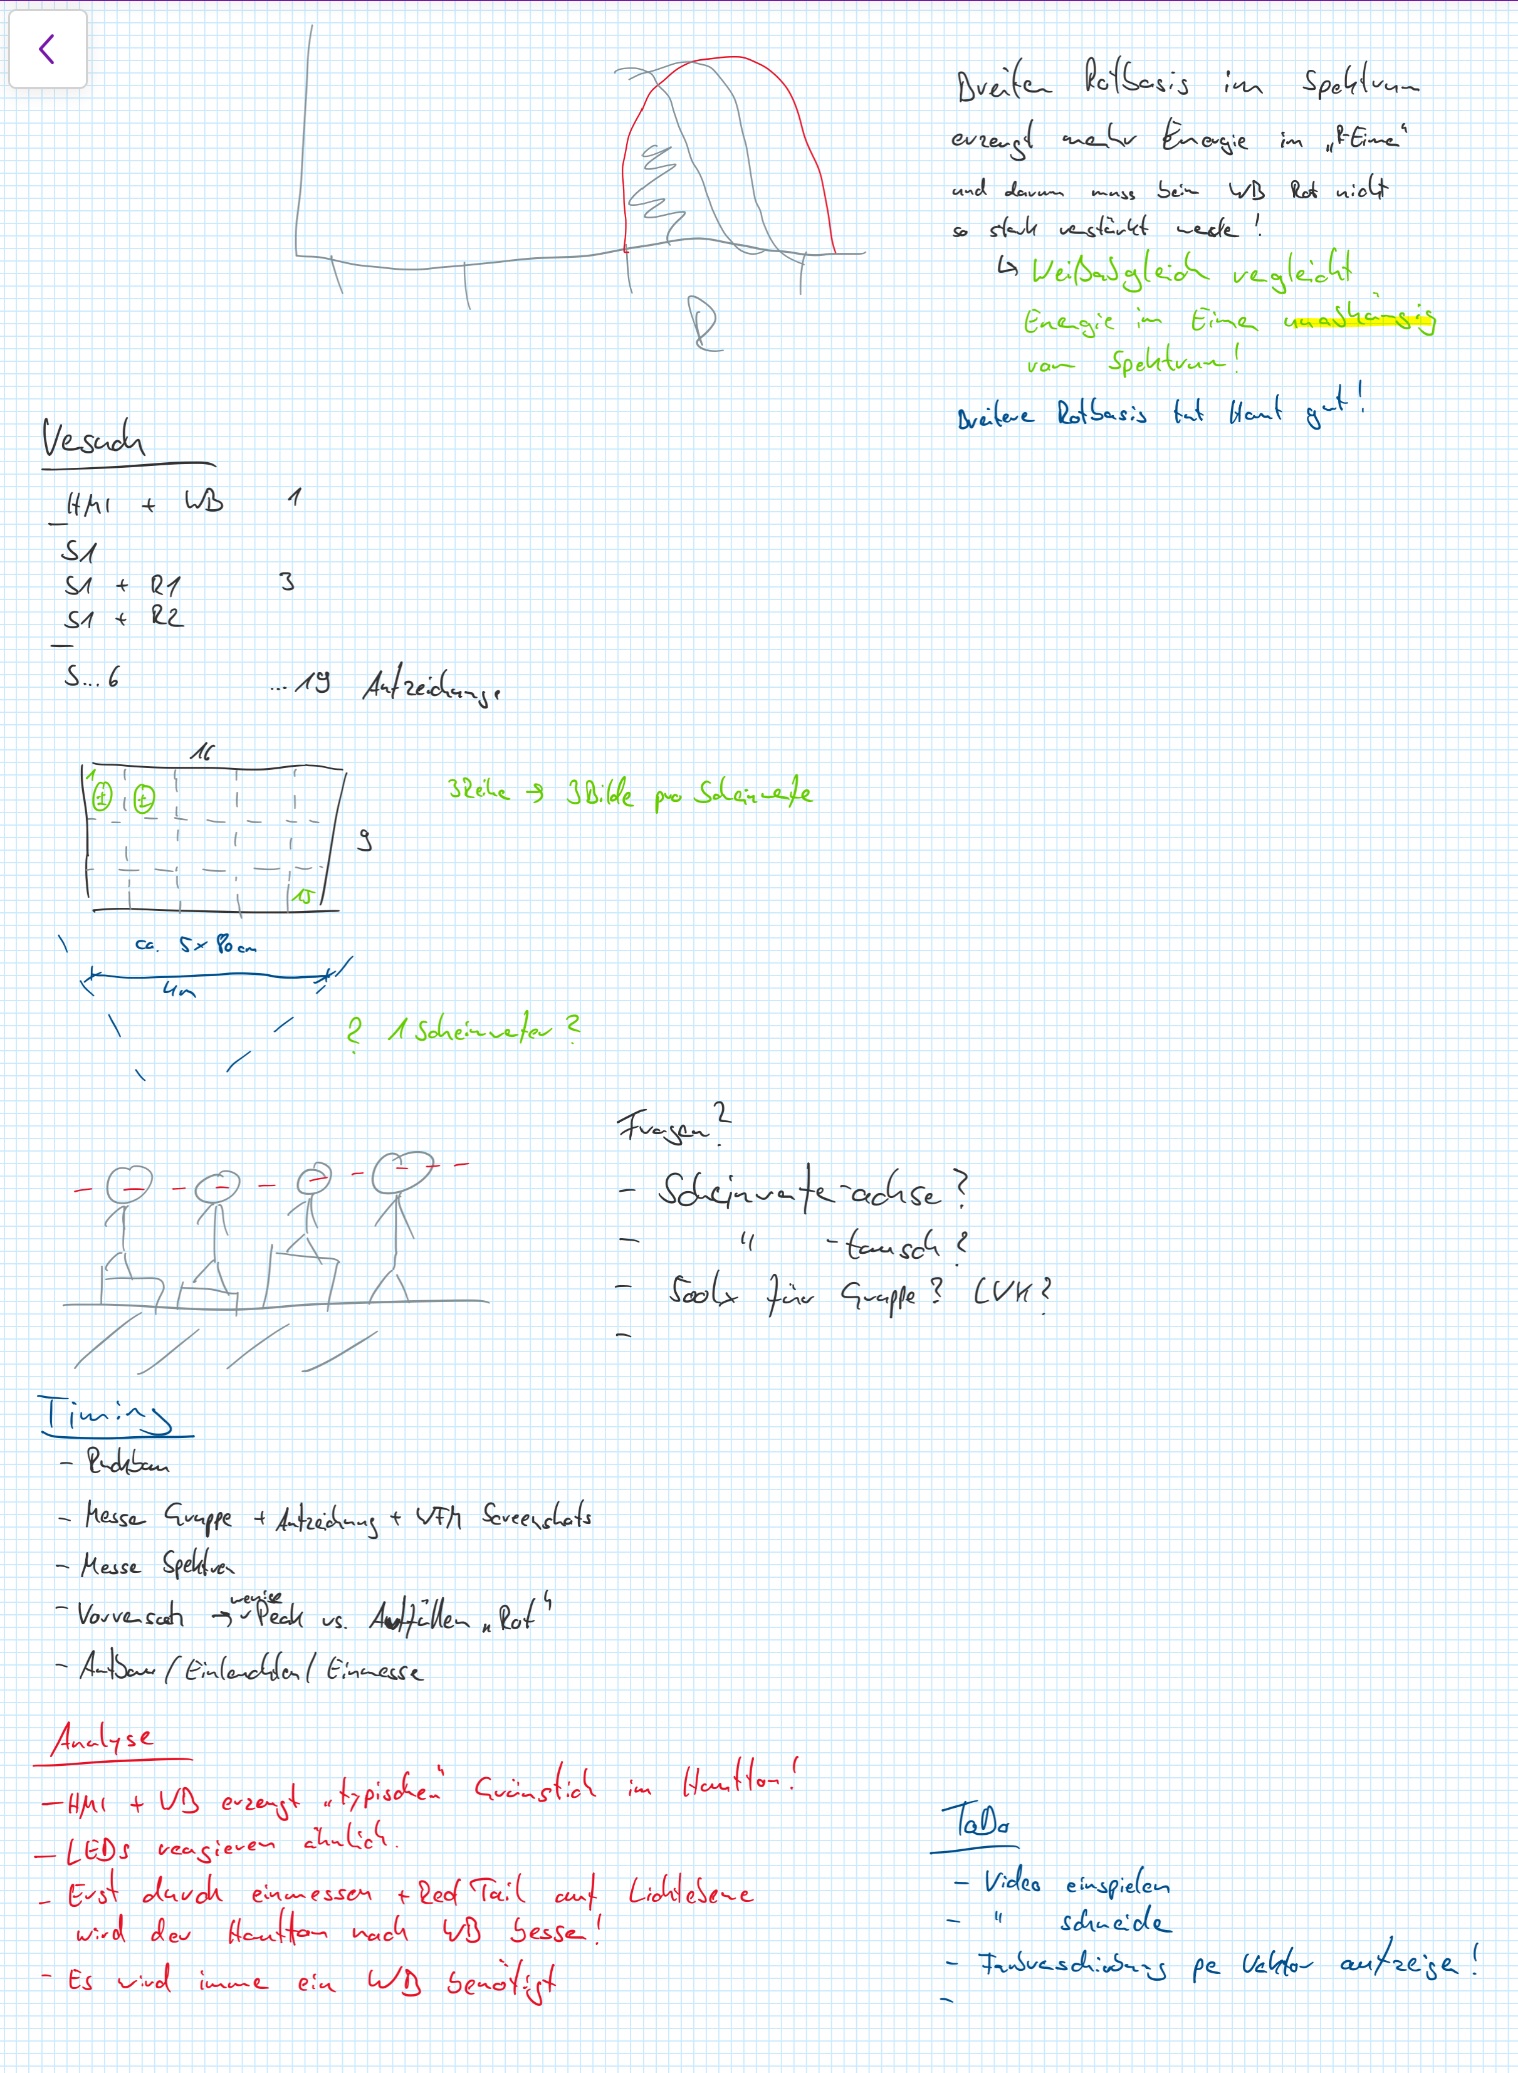 Breiten Rotbasis im Spektrum
erzeugt mehr Energie im „R-Eimer“
und darum muss beim WB Rot nicht
so stark verstärkt werde!
↳ Weißabgleich vergleicht
Energie im Eimer unabhängig
vom Spektrum!
Breitere Rotbasis tut Haut gut!
R
Versuch
HMI + WB 1
S1
S1 + R1 3
S1 + R2
S...6 ...19 Aufzeichnunge
16
1
± ±
9
15
3 Reihe → 3 Bilde pro Scheinwerfe
ca. 5 x 80 cm
4m
? 1 Scheinwerfer ?
Fragen?
- Scheinwerfer-achse?
- " -tausch?
- 500lx für Gruppe? LVK?
-
Timing
- Rückbau
- Messe Gruppe + Aufzeichnung + WFM Screenshots
- Messe Spektren
- Vorversuch → wenige Peak vs. Auffüllen „Rot“
- Aufbau / Einleuchten / Einmesse
Analyse
- HMI + WB erzeugt „typischen“ Grünstich im Hautton!
- LEDs reagieren ähnlich.
- Erst durch einmessen + Red Tail auf Lichtebene
wird der Hautton nach WB besser!
- Es wird imme ein WB benötigt
ToDo
- Video einspielen
- " schneide
- Farbverschiebung per Vektor aufzeige!
-